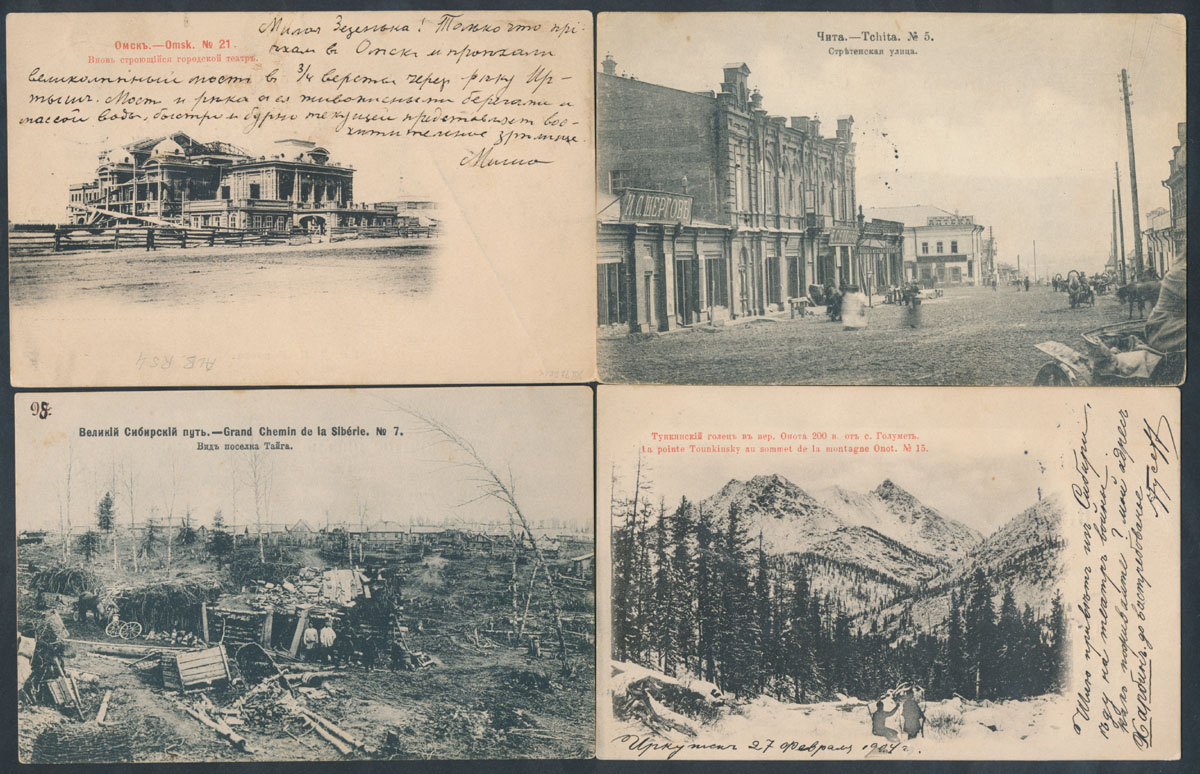 Омскъ.—Omsk. № 21.
Вновь строющійся городской театръ.
Милая Зезенька! Только что прі-
ѣхали в Омскъ и проѣхали
великолѣпный мостъ в 3/4 версты через рѣку Ир-
тышъ. Мост и рѣка с ея живописными берегами и
массой воды, быстро и бурно текущей представляет вос-
хитительное зрѣлище
Миша
ALB RS4
Чита.—Tchita. № 5.
Стрѣтенская улица.
И.С.ШЕРГОВЪ
98
Великій Сибирскій путь.—Grand Chemin de la Sibérie. № 7.
Видъ поселка Тайга.
Тункинскій голецъ въ вер. Онота 200 в. отъ с. Голуметь.
La pointe Tounkinsky au sommet de la montagne Onot. № 15.
Шлю привѣтъ изъ Сибири,
ѣду на театръ войны
какъ поживаете? мой адрес
Харбинъ до востребованія
Гусев
Иркутскъ 27 февраля 1904 г.